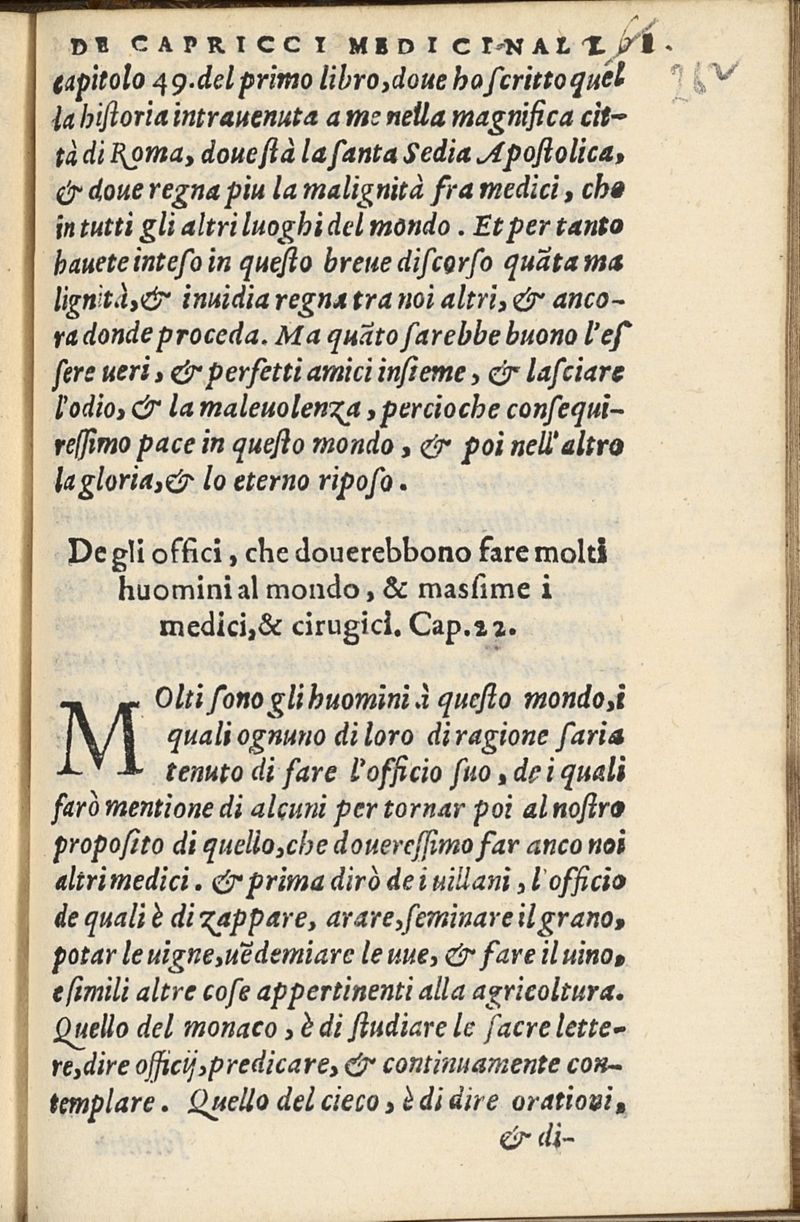 DE CAPRICCI MEDICINALI
262
capitolo 49. del primo libro, doue ho scritto quel
la historia intrauenuta a me nella magnifica cit-
tà di Roma, doue stà la santa Sedia Apostolica,
& doue regna piu la malignità fra medici, che
in tutti gli altri luoghi del mondo. Et per tanto
hauete inteso in questo breue discorso quãta ma
lignità, & inuidia regna tra noi altri, & anco-
ra donde proceda. Ma quãto sarebbe buono l'es
sere ueri, & perfetti amici insieme, & lasciare
l'odio, & la maleuolenza, percioche consequi-
ressimo pace in questo mondo, & poi nell'altro
la gloria, & lo eterno riposo.
De gli offici, che douerebbono fare molti
huomini al mondo, & massime i
medici, & cirugici. Cap. 22.
MOlti sono gli huomini à questo mondo, i
quali ognuno di loro di ragione saria
tenuto di fare l'officio suo, de i quali
farò mentione di alcuni per tornar poi al nostro
proposito di quello, che doueressimo far anco noi
altri medici. & prima dirò de i uillani, l'officio
de quali è di zappare, arare, seminare il grano,
potar le uigne, uẽdemiare le uue, & fare il uino,
e simili altre cose appertinenti alla agricoltura.
Quello del monaco, è di studiare le sacre lette-
re, dire officij, predicare, & continuamente con-
templare. Quello del cieco, è di dire orationi,
& di-